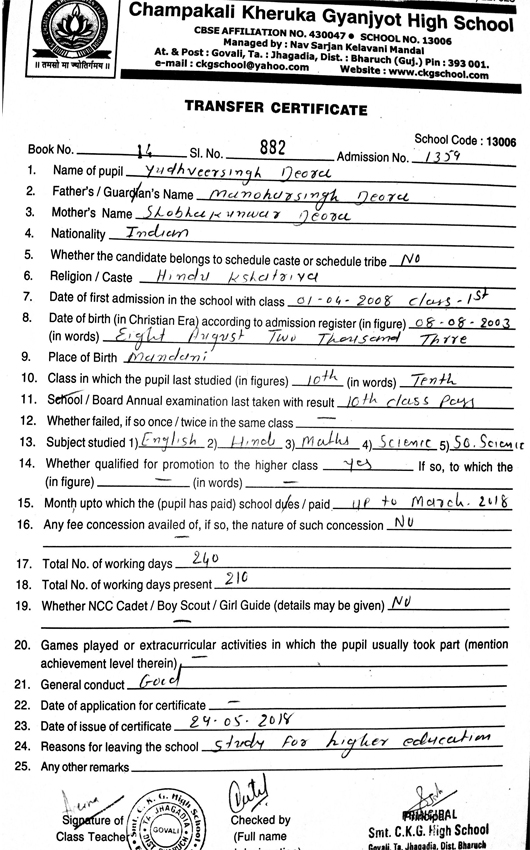 Champakali Kheruka Gyanjyot High School
CBSE AFFILIATION NO. 430047 • SCHOOL NO. 13006
Managed by : Nav Sarjan Kelavani Mandal
At. & Post : Govali, Ta. : Jhagadia, Dist. : Bharuch (Guj.) Pin : 393 001.
e-mail : ckgschool@yahoo.com Website : www.ckgschool.com
॥ तमसो मा ज्योतिर्गमय ॥
TRANSFER CERTIFICATE
School Code : 13006
Book No. 14 Sl. No. 882 Admission No. 1359
1. Name of pupil Yudhveersingh Deora
2. Father's / Guardian's Name Manoharsingh Deora
3. Mother's Name Shobhakunwar Deora
4. Nationality Indian
5. Whether the candidate belongs to schedule caste or schedule tribe NO
6. Religion / Caste Hindu Kshatriya
7. Date of first admission in the school with class 01-04-2008 class-1st
8. Date of birth (in Christian Era) according to admission register (in figure) 08-08-2003
(in words) Eight August Two Thousand Three
9. Place of Birth Mandani
10. Class in which the pupil last studied (in figures) 10th (in words) Tenth
11. School / Board Annual examination last taken with result 10th class Pass
12. Whether failed, if so once / twice in the same class —
13. Subject studied 1) English 2) Hindi 3) Maths 4) Science 5) So. Science
14. Whether qualified for promotion to the higher class yes If so, to which the
(in figure) — (in words) —
15. Month upto which the (pupil has paid) school dues / paid up to March. 2018
16. Any fee concession availed of, if so, the nature of such concession NO
—
17. Total No. of working days 240
18. Total No. of working days present 210
19. Whether NCC Cadet / Boy Scout / Girl Guide (details may be given) NO
—
20. Games played or extracurricular activities in which the pupil usually took part (mention
achievement level therein) —
21. General conduct Good
22. Date of application for certificate —
23. Date of issue of certificate 24-05-2018
24. Reasons for leaving the school study for higher education
25. Any other remarks
Signature of
Class Teacher
Smt. C. K. G. High School
TA. JHAGADIA
GOVALI
Checked by
(Full name
PRINCIPAL
Smt. C.K.G. High School
Govali, Ta. Jhagadia, Dist. Bharuch